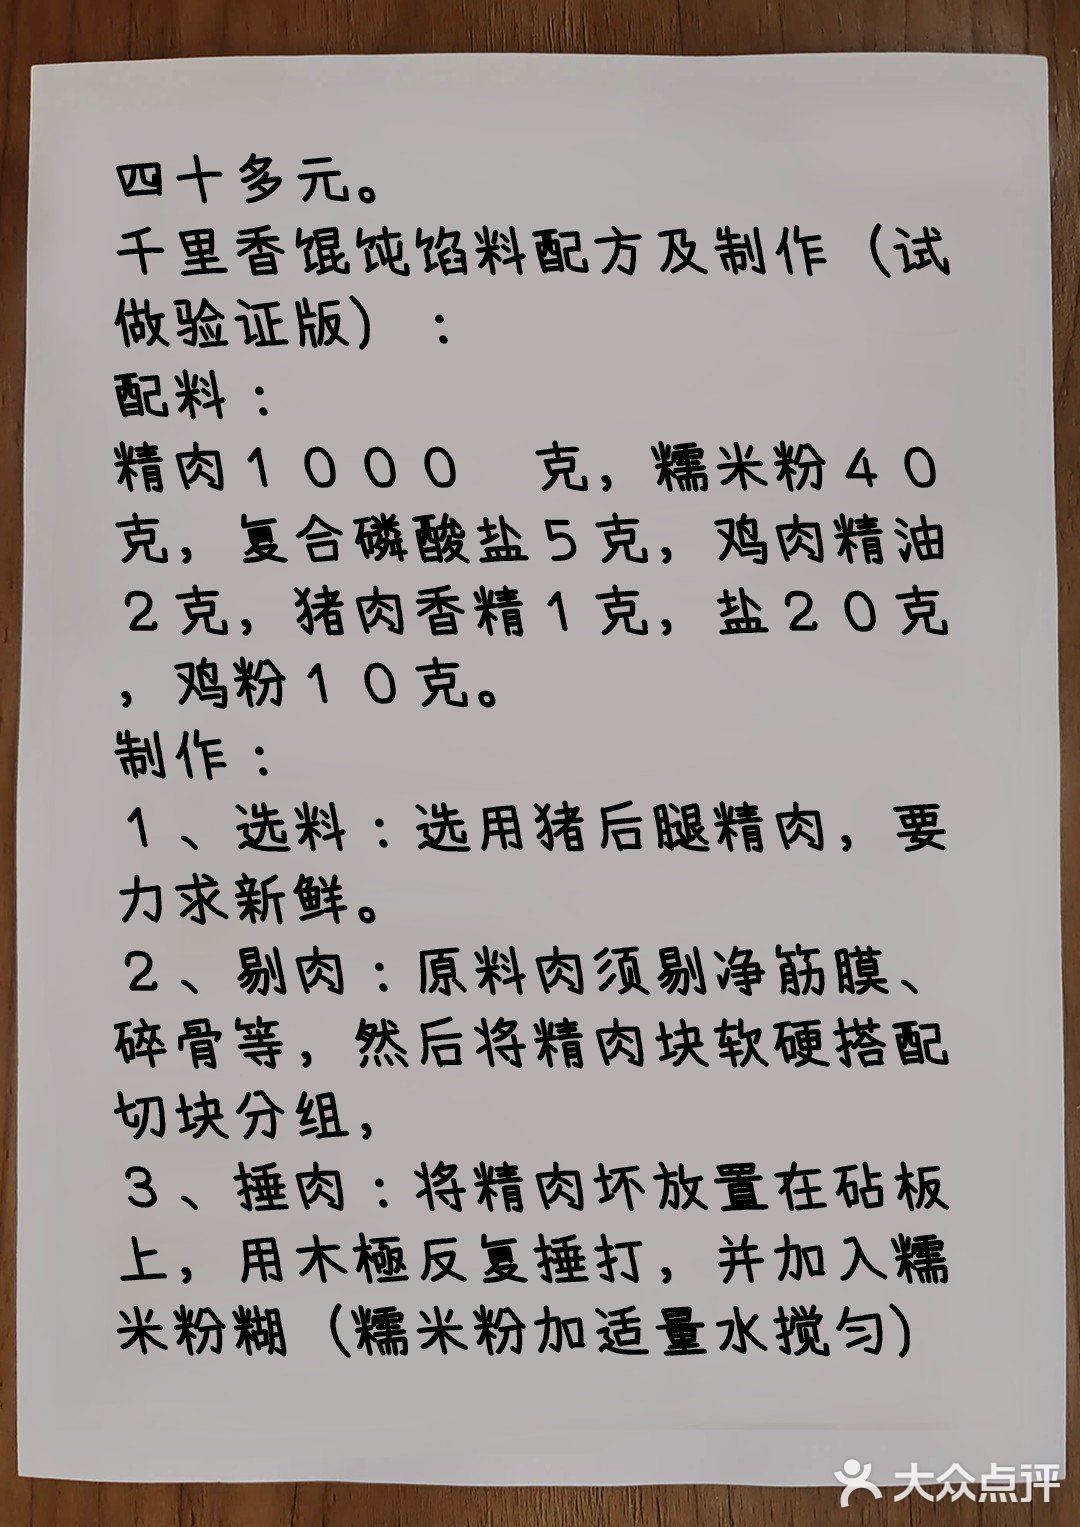 四十多元。
千里香馄饨馅料配方及制作（试
做验证版）：
配料：
精肉1000 克，糯米粉40
克，复合磷酸盐5克，鸡肉精油
2克，猪肉香精1克，盐20克
，鸡粉10克。
制作：
1、选料：选用猪后腿精肉，要
力求新鲜。
2、剔肉：原料肉须剔净筋膜、
碎骨等，然后将精肉块软硬搭配
切块分组，
3、捶肉：将精肉坏放置在砧板
上，用木極反复捶打，并加入糯
米粉糊（糯米粉加适量水搅匀）
大众点评